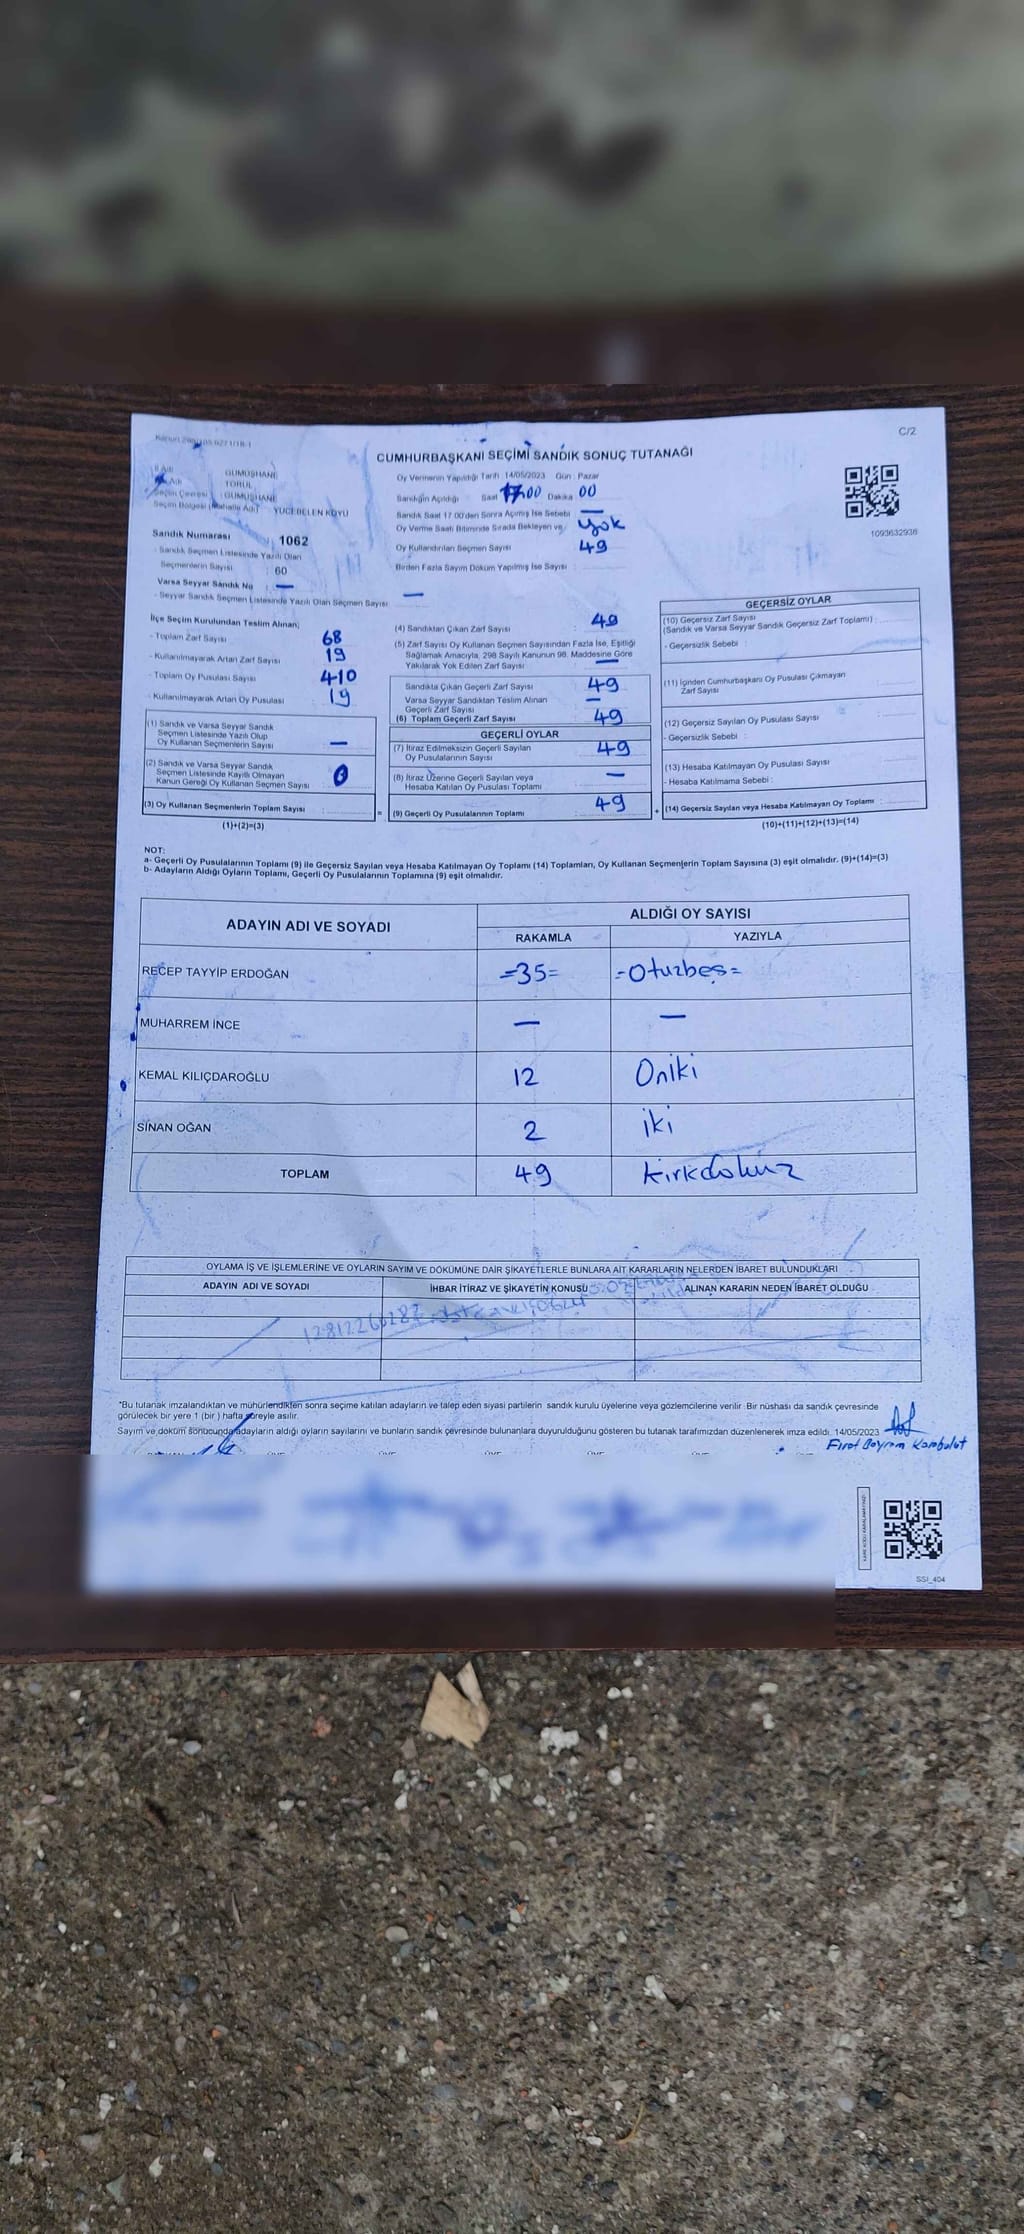 C/2
CUMHURBAŞKANI SEÇİMİ SANDIK SONUÇ TUTANAĞI
İl Adı : GÜMÜŞHANE
TORUL
Seçim Çevresi : GÜMÜŞHANE
Seçim Bölgesi (Mahalle Adı) : YÜCEBELEN KÖYÜ
Sandık Numarası : 1062
- Sandık Seçmen Listesinde Yazılı Olan
Seçmenlerin Sayısı : 60
Varsa Seyyar Sandık No : —
- Seyyar Sandık Seçmen Listesinde Yazılı Olan Seçmen Sayısı : —
Oy Vermenin Yapıldığı Tarih : 14/05/2023 Gün : Pazar
Sandığın Açıldığı Saat 17.00 Dakika 00
Sandık Saat 17.00'den Sonra Açılmış İse Sebebi : —
Oy Verme Saati Bitiminde Sırada Bekleyen yok
Oy Kullandırılan Seçmen Sayısı : 49
Birden Fazla Sayım Döküm Yapılmış İse Sayısı :
1093632936
İlçe Seçim Kurulundan Teslim Alınan;
- Toplam Zarf Sayısı : 68
- Kullanılmayarak Artan Zarf Sayısı : 19
- Toplam Oy Pusulası Sayısı : 410
- Kullanılmayarak Artan Oy Pusulası : 19
(1) Sandık ve Varsa Seyyar Sandık
Seçmen Listesinde Yazılı Olup
Oy Kullanan Seçmenlerin Sayısı : —
(2) Sandık ve Varsa Seyyar Sandık
Seçmen Listesinde Kayıtlı Olmayan
Kanun Gereği Oy Kullanan Seçmen Sayısı : 0
(3) Oy Kullanan Seçmenlerin Toplam Sayısı :
(1)+(2)=(3)
(4) Sandıktan Çıkan Zarf Sayısı : 49
(5) Zarf Sayısı Oy Kullanan Seçmen Sayısından Fazla İse, Eşitliği
Sağlamak Amacıyla, 298 Sayılı Kanunun 98. Maddesine Göre
Yakılarak Yok Edilen Zarf Sayısı : —
Sandıkta Çıkan Geçerli Zarf Sayısı : 49
Varsa Seyyar Sandıktan Teslim Alınan
Geçerli Zarf Sayısı : —
(6) Toplam Geçerli Zarf Sayısı : 49
GEÇERLİ OYLAR
(7) İtiraz Edilmeksizin Geçerli Sayılan
Oy Pusulalarının Sayısı : 49
(8) İtiraz Üzerine Geçerli Sayılan veya
Hesaba Katılan Oy Pusulası Toplamı : —
= (9) Geçerli Oy Pusulalarının Toplamı : 49
GEÇERSİZ OYLAR
(10) Geçersiz Zarf Sayısı
(Sandık ve Varsa Seyyar Sandık Geçersiz Zarf Toplamı) :
- Geçersizlik Sebebi :
(11) İçinden Cumhurbaşkanı Oy Pusulası Çıkmayan
Zarf Sayısı :
(12) Geçersiz Sayılan Oy Pusulası Sayısı :
- Geçersizlik Sebebi :
(13) Hesaba Katılmayan Oy Pusulası Sayısı :
- Hesaba Katılmama Sebebi :
+ (14) Geçersiz Sayılan veya Hesaba Katılmayan Oy Toplamı :
(10)+(11)+(12)+(13)=(14)
NOT:
a- Geçerli Oy Pusulalarının Toplamı (9) ile Geçersiz Sayılan veya Hesaba Katılmayan Oy Toplamı (14) Toplamları, Oy Kullanan Seçmenlerin Toplam Sayısına (3) eşit olmalıdır. (9)+(14)=(3)
b- Adayların Aldığı Oyların Toplamı, Geçerli Oy Pusulalarının Toplamına (9) eşit olmalıdır.
ADAYIN ADI VE SOYADI ALDIĞI OY SAYISI
RAKAMLA YAZIYLA
RECEP TAYYİP ERDOĞAN =35= -Otuzbeş=
MUHARREM İNCE — —
KEMAL KILIÇDAROĞLU 12 Oniki
SİNAN OĞAN 2 iki
TOPLAM 49 kırkdokuz
OYLAMA İŞ VE İŞLEMLERİNE VE OYLARIN SAYIM VE DÖKÜMÜNE DAİR ŞİKAYETLERLE BUNLARA AİT KARARLARIN NELERDEN İBARET BULUNDUKLARI
ADAYIN ADI VE SOYADI İHBAR İTİRAZ VE ŞİKAYETİN KONUSU ALINAN KARARIN NEDEN İBARET OLDUĞU
*Bu tutanak imzalandıktan ve mühürlendikten sonra seçime katılan adayların ve talep eden siyasi partilerin sandık kurulu üyelerine veya gözlemcilerine verilir. Bir nüshası da sandık çevresinde
görülecek bir yere 1 (bir ) hafta süreyle asılır.
Sayım ve döküm sonucunda adayların aldığı oyların sayılarını ve bunların sandık çevresinde bulunanlara duyurulduğunu gösteren bu tutanak tarafımızdan düzenlenerek imza edildi. 14/05/2023
Fırat Bayram Karabulut
SSI_404